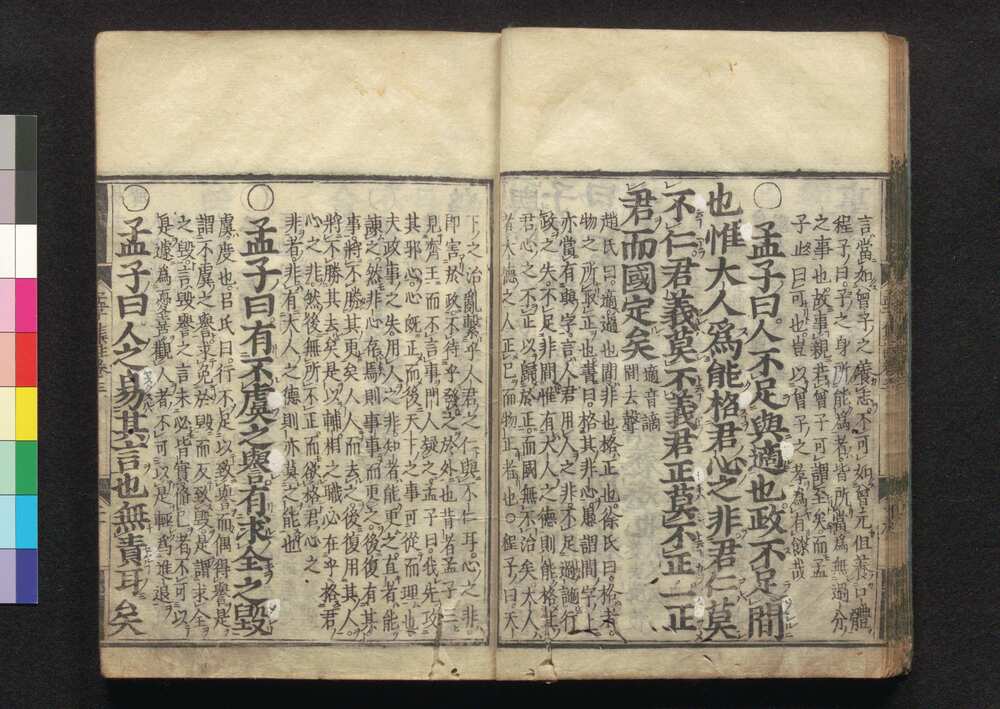 言當如曾子之養志不可如曾元但養口體
程子曰子之身所能爲者皆所當爲無過分
之事也故事親若曾子可謂至矣而孟
子止曰可也豈以曾子之孝爲有餘哉
○孟子曰人不足與適也政不足間
也惟大人爲能格君心之非君仁莫
不仁君義莫不義君正莫不正一正
君而國定矣 適音謫 間去聲
趙氏曰適過也間非也格正也徐氏曰格者
物之所取正也書曰格其非心愚謂間字上
亦當有與字言人君用人之非不足過謫行
政之失不足非間惟有大人之德則能格其
君心之不正以歸於正而國無不治矣大人
者大德之人正己而物正者也○程子曰天
下之治亂繫乎人君之仁與不仁耳心之非
即害於政不待乎發之於外也昔者孟子三
見齊王而不言事門人疑之孟子曰我先攻
其邪心心既正而後天下之事可從而理也
夫政事之失用人之非知者能更之直者能
諫之然非心存焉則事事而更之後復有其
事將不勝其更矣人人而去之後復用其人
將不勝其去矣是以輔相之職必在乎格君
心之非然後無所不正而欲格君心之
非者非有大人之德則亦莫之能也
○孟子曰有不虞之譽有求全之毀
虞度也呂氏曰行不足以致譽而偶得譽是
謂不虞之譽求免於毀而反致毀是謂求全
之毀言毀譽之言未必皆實脩己者不可以
是遽爲憂喜觀人者不可以是輕爲進退
○孟子曰人之易其言也無責耳矣